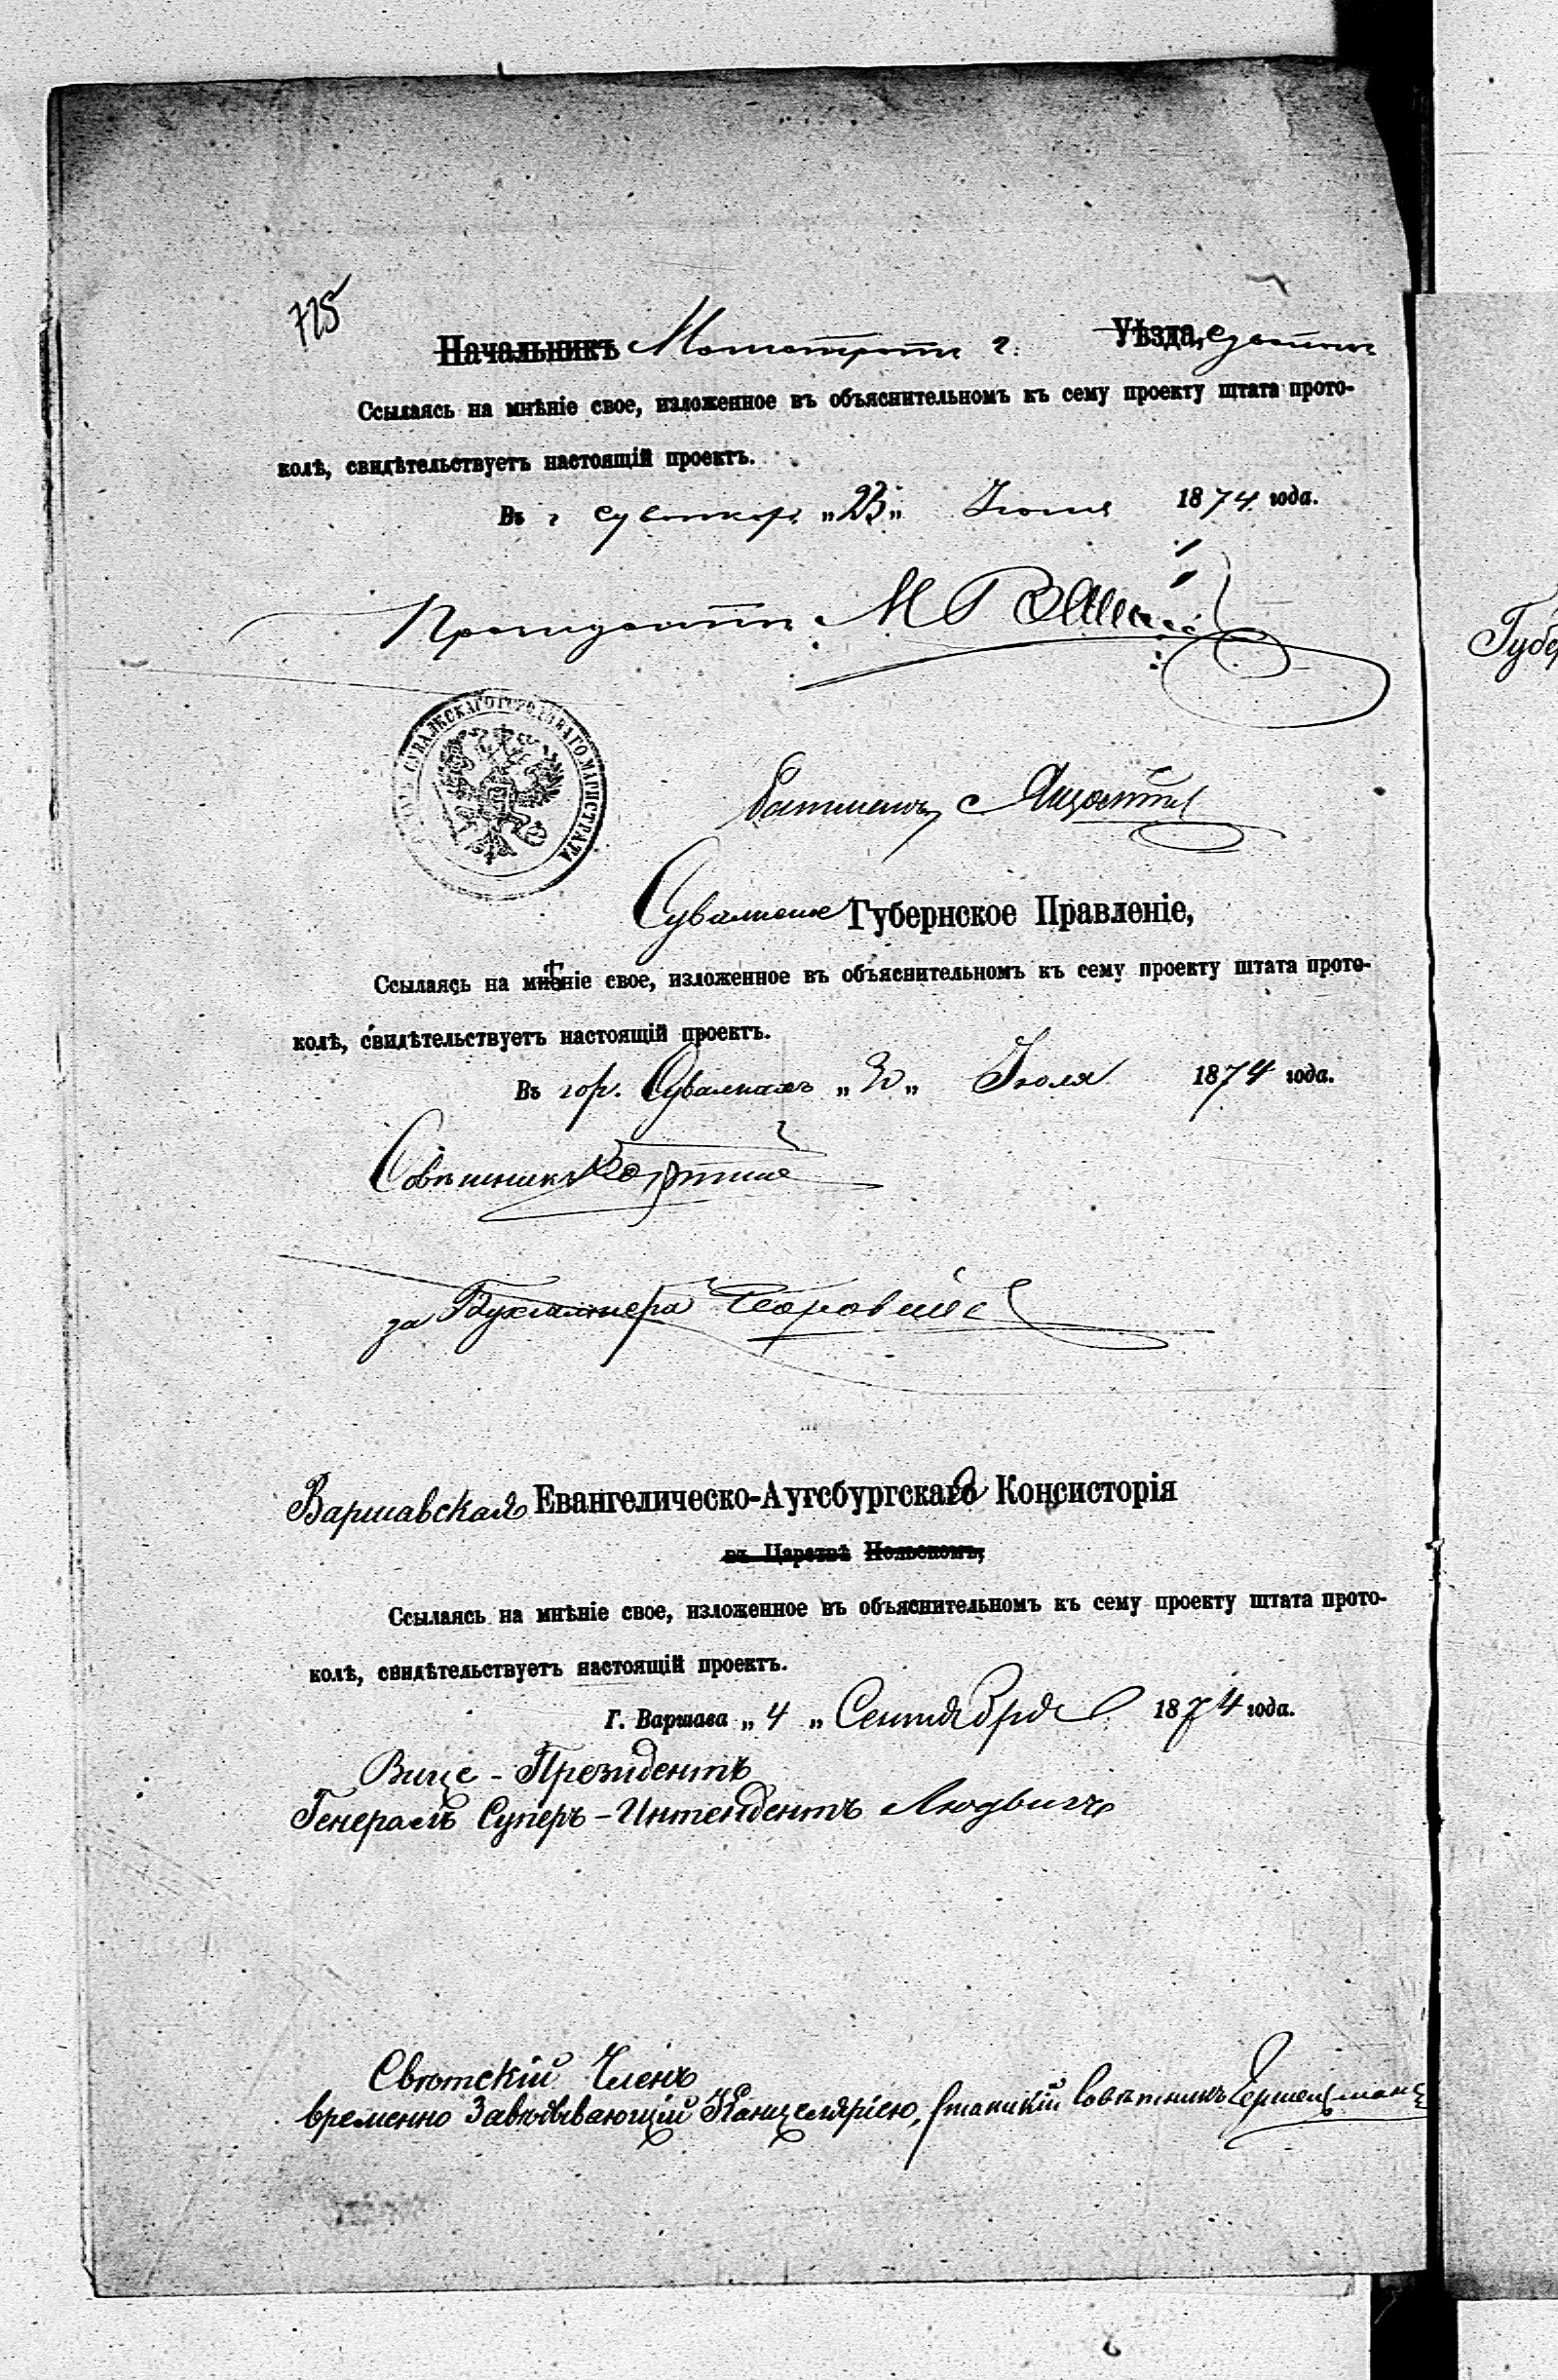 725
Начальникъ Магистратъ г. Уѣзда, Сувалки
Ссылаясь на мнѣніе свое, изложенное въ объяснительномъ къ сему проекту штата прото-
колѣ, свидѣтельствуетъ настоящій проектъ.
Въ г Сувалкахъ „23„ 1874 года.
Президентъ М
СУВАЛКСКАГО ГОРОДОВАГО МАГИСТРАТА
Сувалкское Губернское Правленіе,
Ссылаясь на мнѣніе свое, изложенное въ объяснительномъ къ сему проекту штата прото-
колѣ, свидѣтельствуетъ настоящій проектъ.
Въ гор. Сувалкахъ „30„ Іюля 1874 года.
Совѣтникъ
за Бухгалтера
Варшавская Евангелическо-Аугсбургская Консисторія
въ Царствѣ Польскомъ,
Ссылаясь на мнѣніе свое, изложенное въ объяснительномъ къ сему проекту штата прото-
колѣ, свидѣтельствуетъ настоящій проектъ.
Г. Варшава „4„ Сентября 1874 года.
Вице-Президентъ
Генералъ Суперъ-Интендентъ Людвигъ
Свѣтскій Членъ
временно Завѣдывающій Канцеляріею, Статскій Совѣтникъ
Губер